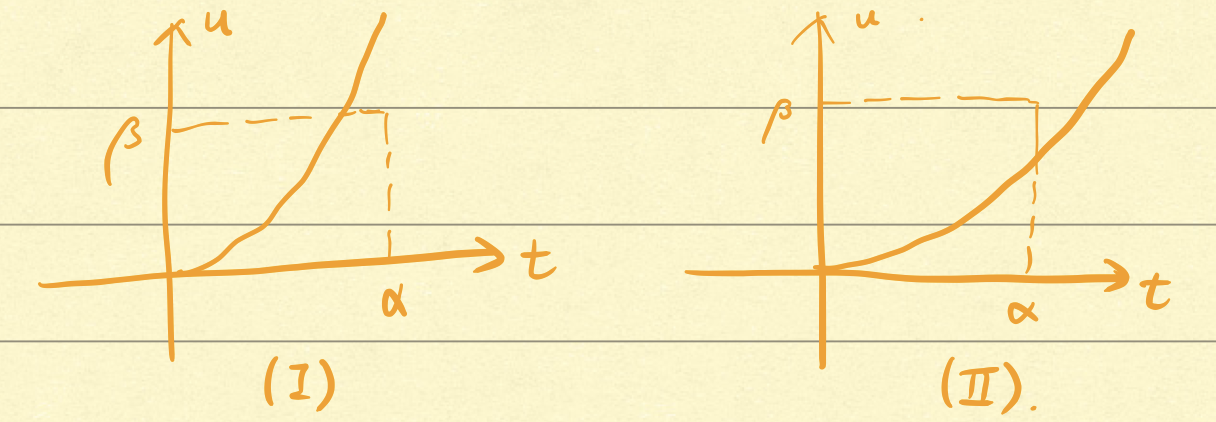 u
β
t
α
(I)
u
β
t
α
(II).